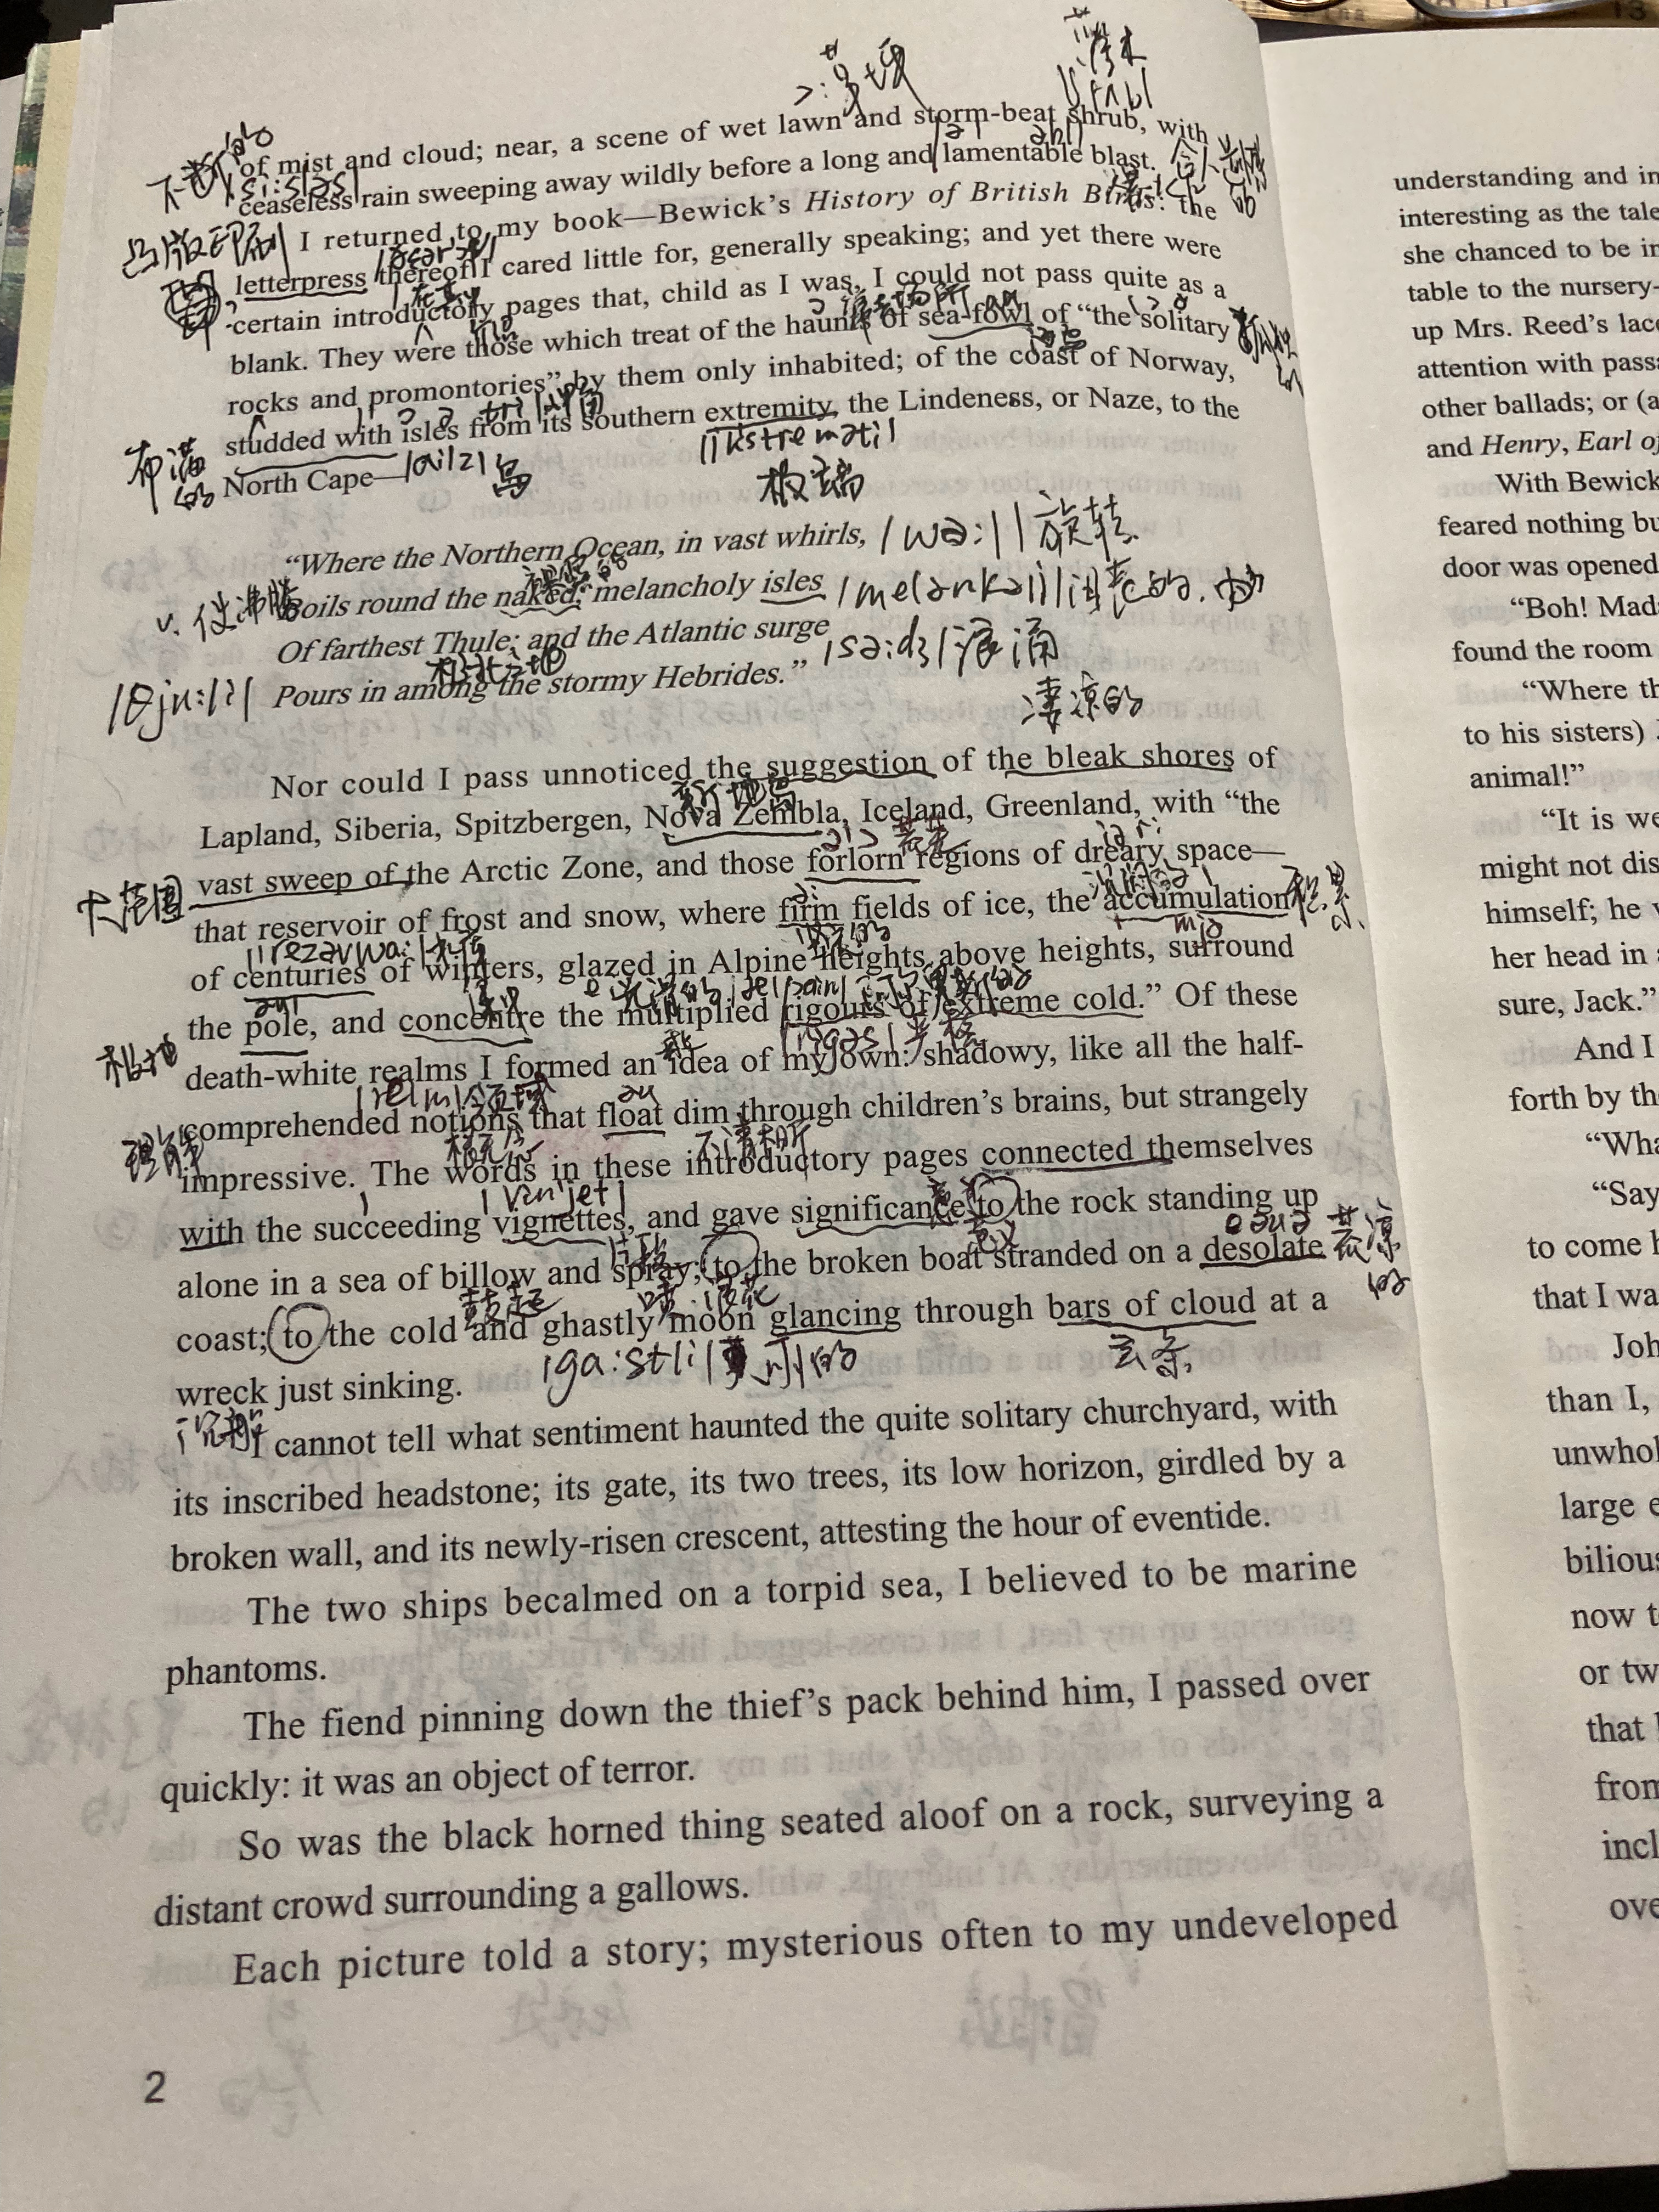 of mist and cloud; near, a scene of wet lawn and storm-beat shrub, with
ceaseless rain sweeping away wildly before a long and lamentable blast.
I returned to my book—Bewick's History of British Birds: the
letterpress thereof I cared little for, generally speaking; and yet there were
certain introductory pages that, child as I was, I could not pass quite as a
blank. They were those which treat of the haunts of sea-fowl of “the solitary
rocks and promontories” by them only inhabited; of the coast of Norway,
studded with isles from its southern extremity, the Lindeness, or Naze, to the
North Cape—
“Where the Northern Ocean, in vast whirls,
Boils round the naked, melancholy isles
Of farthest Thule; and the Atlantic surge
Pours in among the stormy Hebrides.”
Nor could I pass unnoticed the suggestion of the bleak shores of
Lapland, Siberia, Spitzbergen, Nova Zembla, Iceland, Greenland, with “the
vast sweep of the Arctic Zone, and those forlorn regions of dreary space—
that reservoir of frost and snow, where firm fields of ice, the accumulation
of centuries of winters, glazed in Alpine heights above heights, surround
the pole, and concentre the multiplied rigours of extreme cold.” Of these
death-white realms I formed an idea of my own: shadowy, like all the half-
comprehended notions that float dim through children's brains, but strangely
impressive. The words in these introductory pages connected themselves
with the succeeding vignettes, and gave significance to the rock standing up
alone in a sea of billow and spray; to the broken boat stranded on a desolate
coast; to the cold and ghastly moon glancing through bars of cloud at a
wreck just sinking.
I cannot tell what sentiment haunted the quite solitary churchyard, with
its inscribed headstone; its gate, its two trees, its low horizon, girdled by a
broken wall, and its newly-risen crescent, attesting the hour of eventide.
The two ships becalmed on a torpid sea, I believed to be marine
phantoms.
The fiend pinning down the thief's pack behind him, I passed over
quickly: it was an object of terror.
So was the black horned thing seated aloof on a rock, surveying a
distant crowd surrounding a gallows.
Each picture told a story; mysterious often to my undeveloped
2
凸版印刷
布满的
岛
极端
旋转
浪涌
凄凉的
大范围
积累
极地
领域
理解
概念
不清晰
荒凉的
云条
understanding and in
interesting as the tale
she chanced to be in
table to the nursery-
up Mrs. Reed's lace
attention with pass
other ballads; or (a
and Henry, Earl of
With Bewick
feared nothing bu
door was opened
“Boh! Mad
found the room
“Where th
to his sisters)
animal!”
“It is we
might not dis
himself; he
her head in
sure, Jack.”
And I
forth by th
“Wha
“Say
to come h
that I wa
Joh
than I,
unwhol
large e
bilious
now t
or tw
that
from
incl
ove